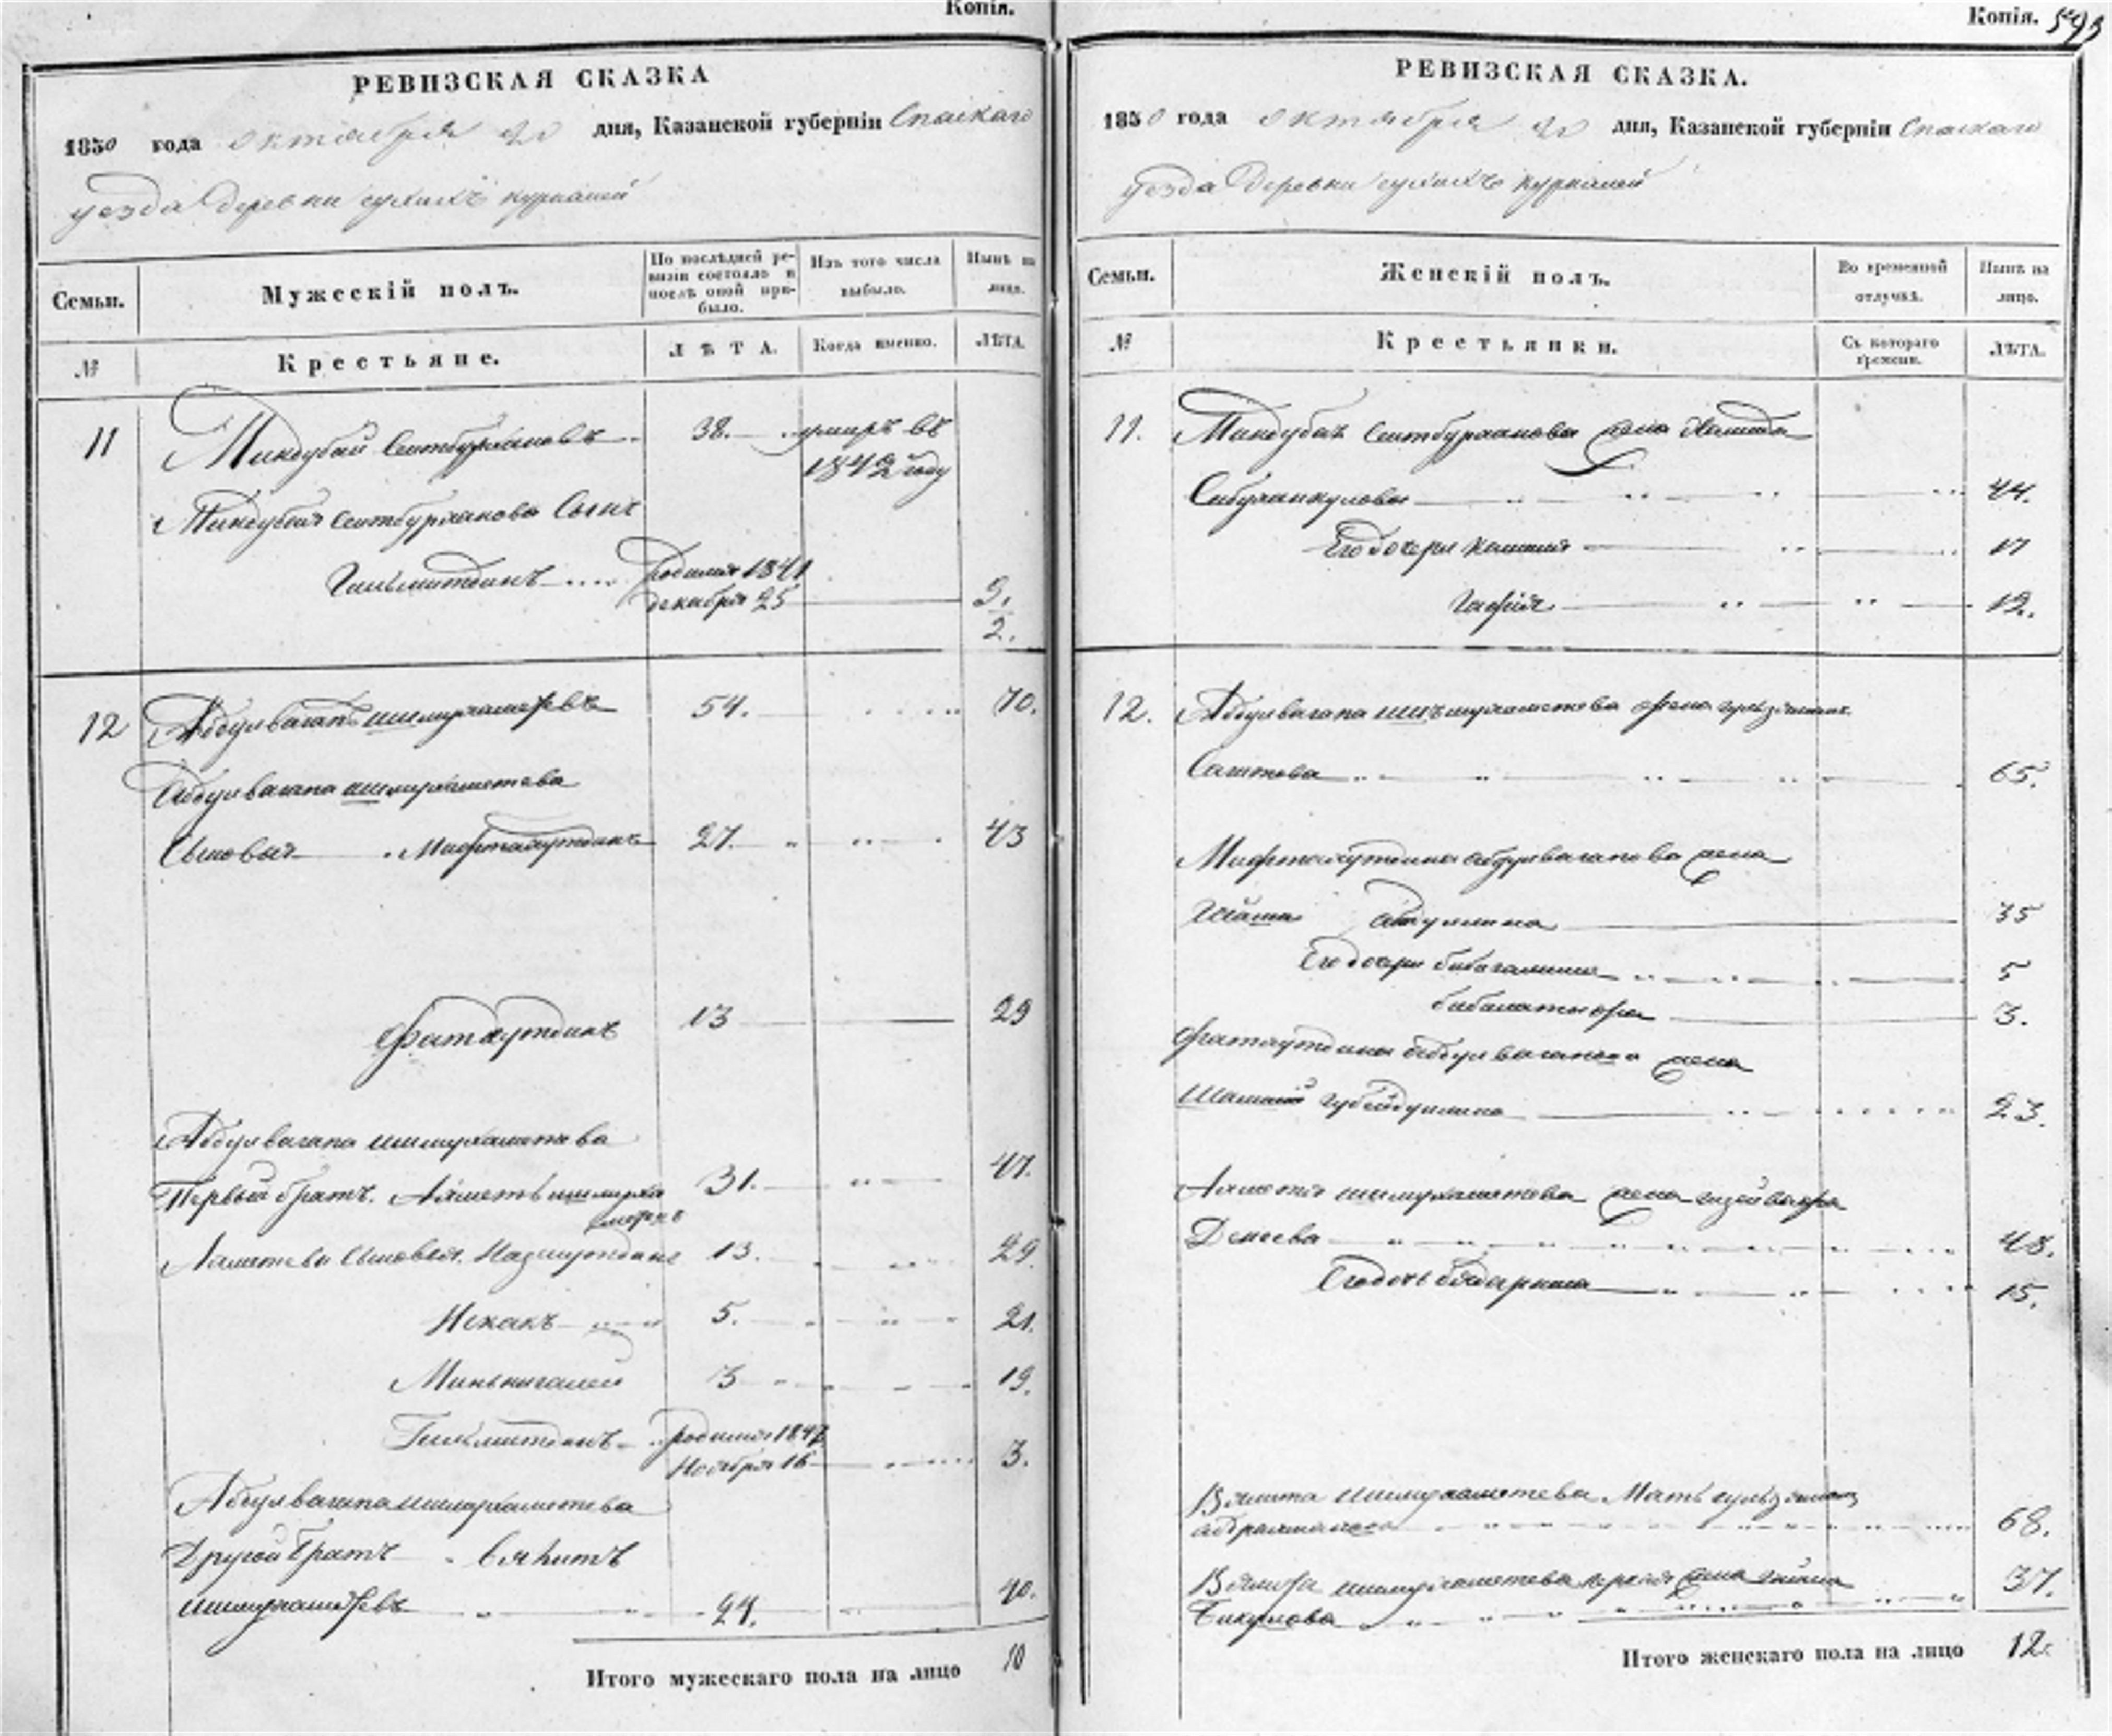 Копія.
РЕВИЗСКАЯ СКАЗКА
1850 года октября 20 дня, Казанской губерніи Спаскаго
уезда деревни сухихъ куркалей
Семьи. Мужескій полъ. По послѣдней ревизіи состояло и послѣ оной прибыло. Изъ того числа выбыло. Нынѣ на лицо.
№ Крестьяне. ЛѢТА. Когда именно. ЛѢТА.
11 Миндубай Сеитбурхановъ 38. умиръ въ
1842 году
Миндубая Сеитбурханова Сынъ
Гильмитдинъ родился 1841
декабря 25 9.
2.
12 Абдулвагапъ шимухаметевъ 54. 70.
Абдулвагапа шимухаметева
Сыновья Мифтахутдинъ 27. 43
Фатхутдинъ 13 29
Абдулвагапа шимухаметева
Первый братъ. Ахметь шимуха 31. 47.
метевъ
Ахметева Сыновья. Назмутдинъ 13. 29.
Исхакъ 5. 21.
Миньнигалей 3 19.
Гилмитдинъ родился 1847
Ноября 16 3.
Абдулвагапа шимухаметева
Другой братъ Вахитъ
шимухаметевъ 24. 40.
Итого мужескаго пола на лицо 10
Копія. 593
РЕВИЗСКАЯ СКАЗКА.
1850 года октября 20 дня, Казанской губерніи Спаскаго
уезда деревни сухихъ куркалей
Семьи. Женскій полъ. Во временной отлучкѣ. Нынѣ на лицо.
№ Крестьянки. Съ котораго времени. ЛѢТА.
11. Миндубая Сеитбурханова жена Хамида
44.
Его дочери 17
Гафія 12.
12. Абдулвагапа шимухаметева жена
Саитова 65.
Мифтахутдина абдулвагапова жена
35
Его дочери бибигалима 5
3.
Фатхутдина абдулвагапова жена
губейдуллина 23.
Ахметя шимухаметева жена
Демеева 48.
Его дочь 15.
Вахита шимухаметева Мать
68.
Вахита шимухаметева первая жена
Бикулова 37.
Итого женскаго пола на лицо 12.